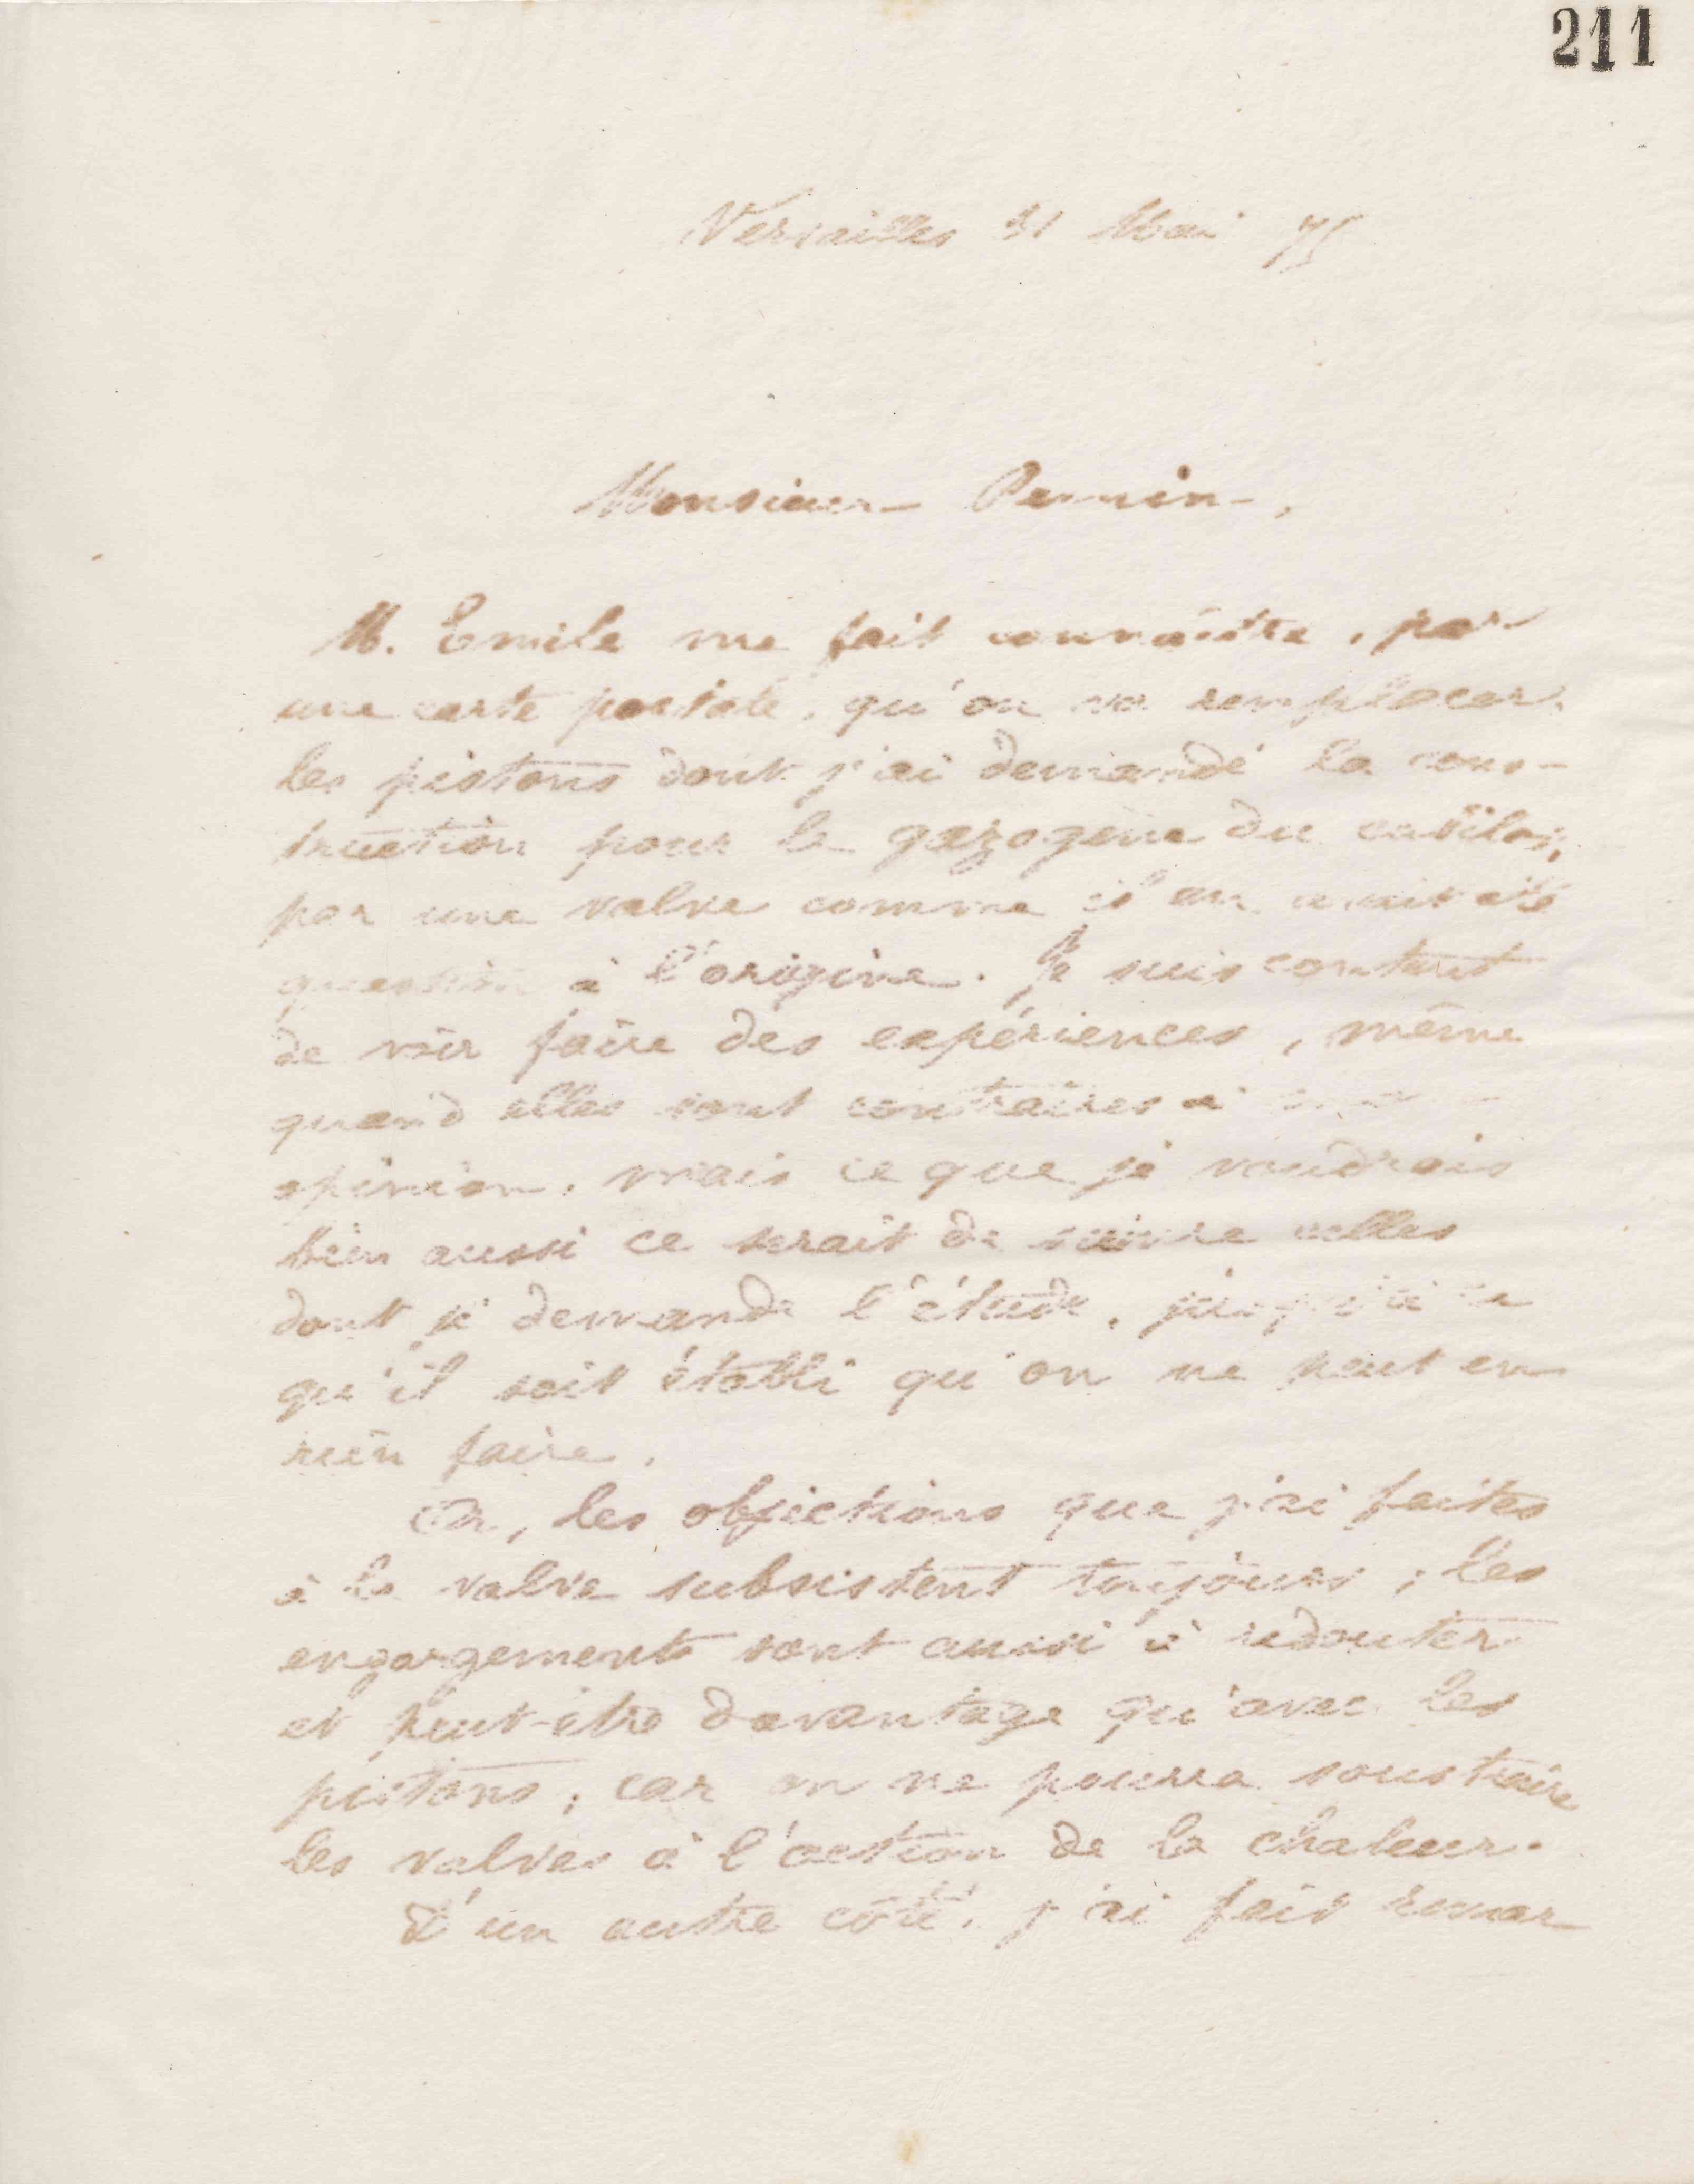 211
Versailles 31 Mai 75
Monsieur Pernin,
M. Emile me fait connaître, par
une carte postale, qu'on va remplacer
les pistons dont j'ai demandé la cons-
truction pour le gazogène du cubilot,
par une valve comme il en avait été
question à l'origine. Je suis content
de voir faire des expériences, même
quand elles sont contraires à
opinion, mais ce que je voudrais
bien aussi ce serait de suivre celles
dont je demande l'étude, jusqu'à ce
qu'il soit établi qu'on ne peut en
rien faire.
Or, les objections que j'ai faites
à la valve subsistent toujours ; les
engorgements sont aussi à redouter
et peut-être davantage qu'avec les
pistons ; car on ne pourra soustraire
les valves à l'action de la chaleur.
D'un autre côté, j'ai fait remar